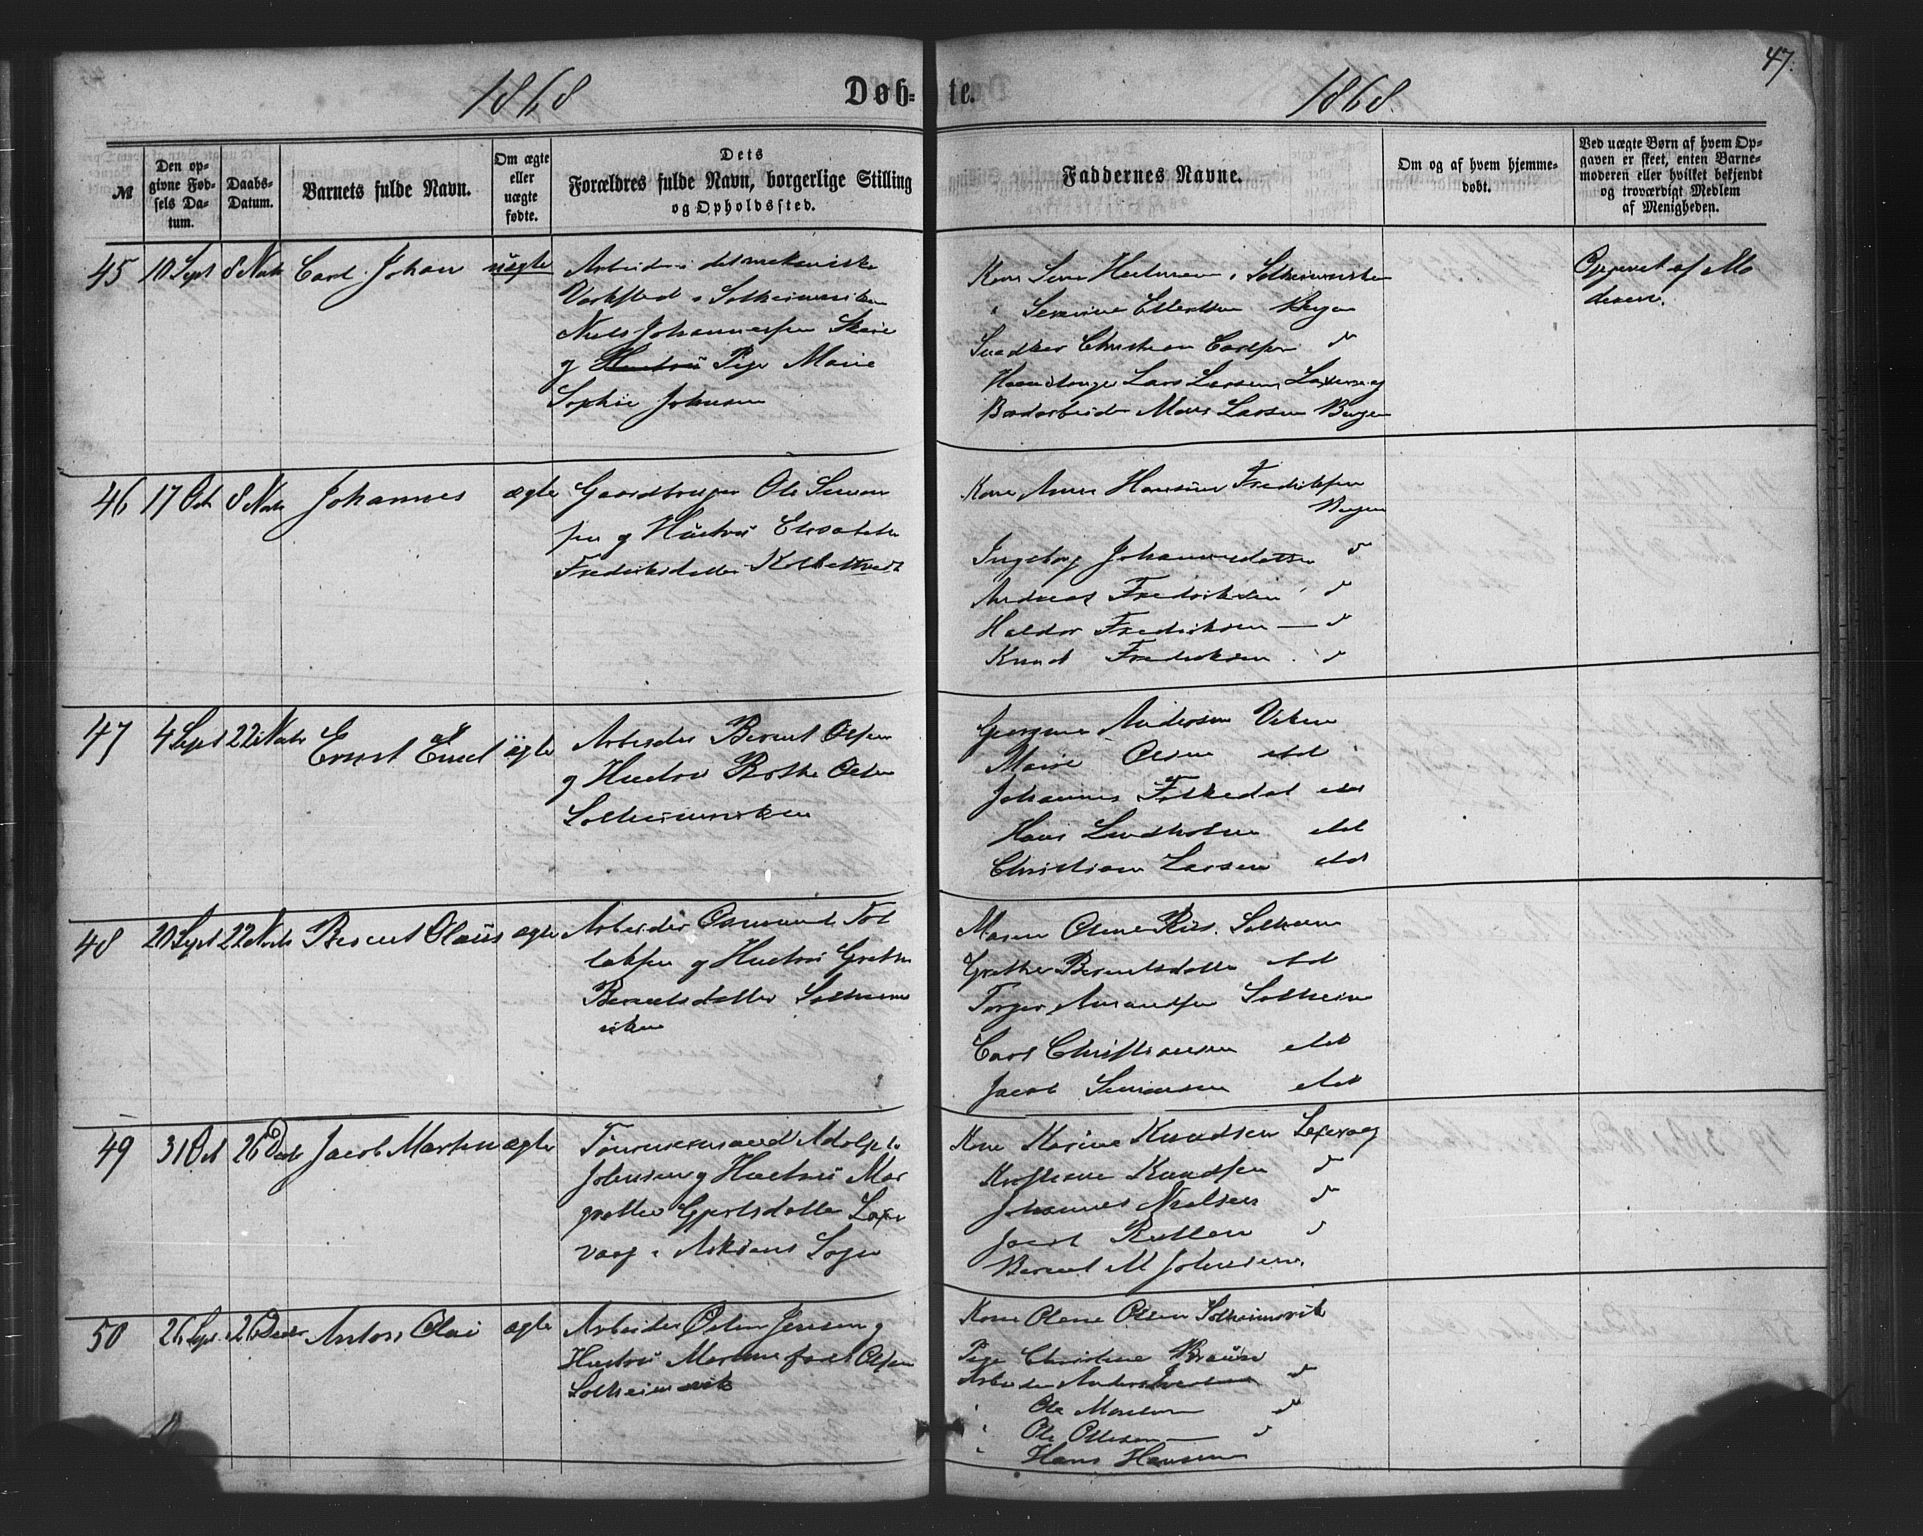 47.
1868 Døb- te. 1868.
№
Den op-
givne Fød-
sels Da-
tum.
Daabs-
Datum.
Barnets fulde Navn.
Om ægte
eller
uægte
fødte.
Dets
Forældres fulde Navn, borgerlige Stilling
og Opholdssted.
Faddernes Navne.
Om og af hvem hjemme-
døbt.
Ved uægte Børn af hvem Op-
gaven er skeet, enten Barne-
moderen eller hvilket bekjendt
og troværdigt Medlem
af Menigheden.
45 10 Sept 8 Novb Carl Johan uægte
Arbeider i det mekaniske
Værksted i Solheimsviken
Niels Johannessen
og Hustrü Pige Marie
Sophie Johnsen
Kone Sina i Solheimsviken
" Severine Bergen
Snedker Christian Carlsen d
Lars Larsen Laxevaag
Mons Larsen Bergen
Opgivet af Mo
deren.
46 17 Oct 8 Novb Johannes ægte
Ole Simon
sen og Hustrü Elisabeth
Fredriksdatter
Kone Anna Fredriksen
Bergen
Ingeborg Johannesdatter d
Andreas Fredriksen d
Haldor Fredriksen — d
Knud Fredriksen d
47 4 Sept 22 Novb Ernst Emil ægte
Arbeider Berent Olsen
og Hustrü Olsen
Solheimsviken
Andersen Viken
Marie Olsen
Johannes
Hans Lindholm
Christian Larsen
48 20 Sept 22 Novb Berent Olaüs ægte
Arbeider Osmund Tol
laksen og Hustrü Grethe
Berentsdatter Solheims
viken
Maren Oline Solheim
Grethe Berentsdatter
Torger Amundsen Solheim
Carl Christiansen
Jacob Simonsen
49 31 Oct 26 Decb Jacob Martin ægte
Tømmermand Adolph
Johnsen og Hustrü Mar
grethe Gjertsdatter Laxe
vaag i Askøens Sogn
Kone Karine Knudsen Laxevaag
Knudsen d
Johannes Nielsen d
Jacob d
Berent M Johnsen
50 26 Sept 26 Decbr Anton Olai ægte
Arbeider Østen Jensen og
Hustrü født Olsen
Solheimsvik
Kone Olene Olsen Solheimsvik
Pige Christine
Arbeider Anders d
" Ole d
" Ole Ottesen — d
" Hans Hansen